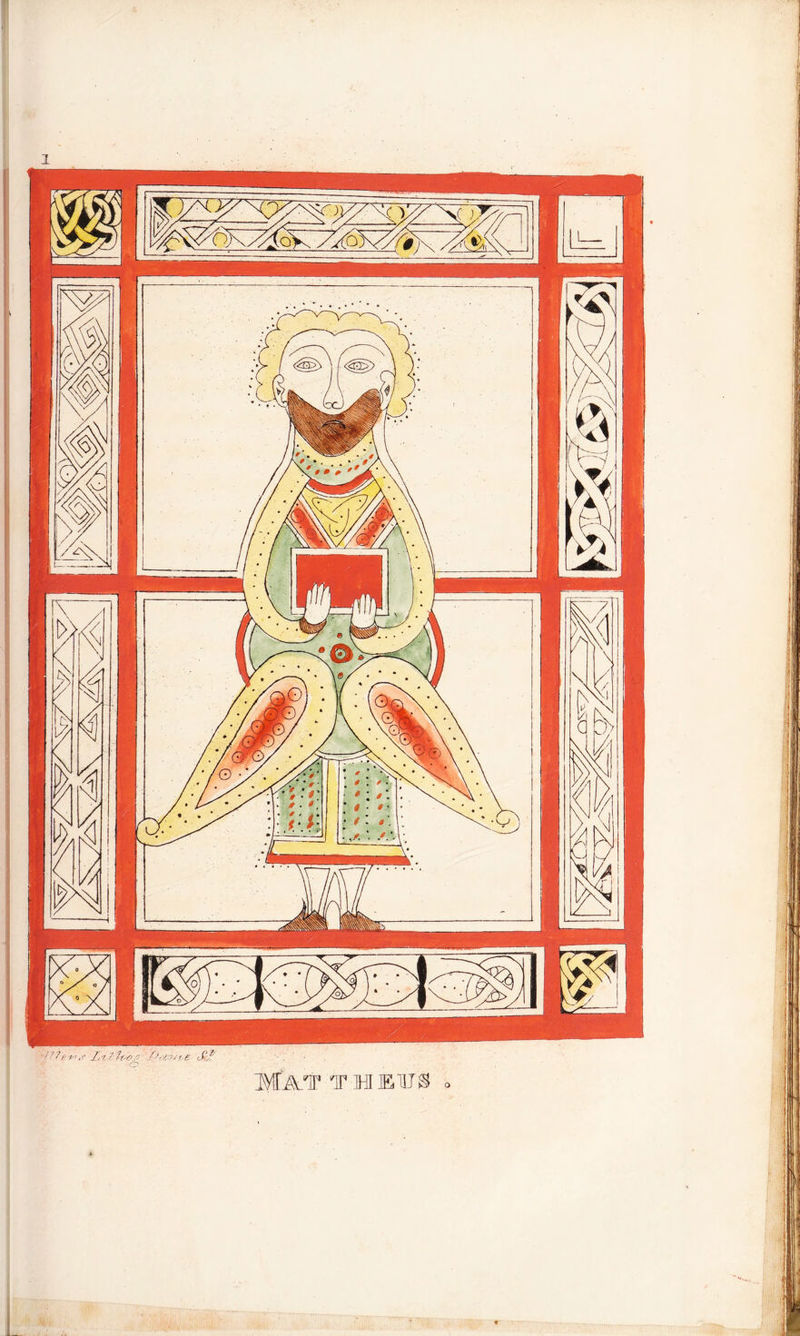 1
Lithog. Dame St.
MATTHEUS.